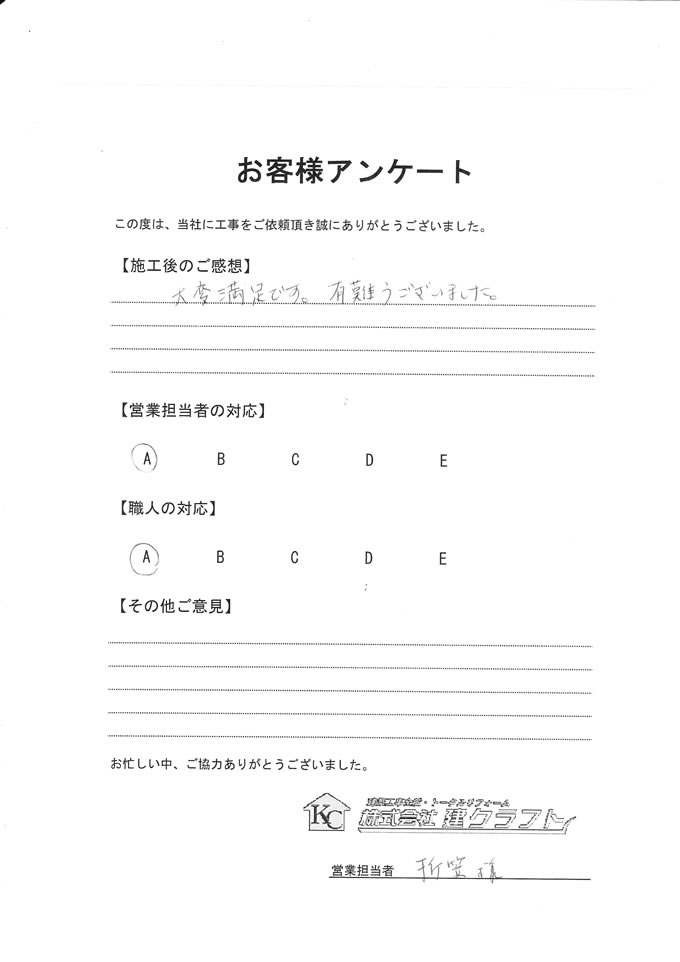 お客様アンケート
この度は、当社に工事をご依頼頂き誠にありがとうございました。
【施工後のご感想】
大変満足です。有難うございました。
【営業担当者の対応】
A B C D E
【職人の対応】
A B C D E
【その他ご意見】
お忙しい中、ご協力ありがとうございました。
建築工事全般・トータルリフォーム
KC 株式会社 建クラフト
営業担当者 折笠様